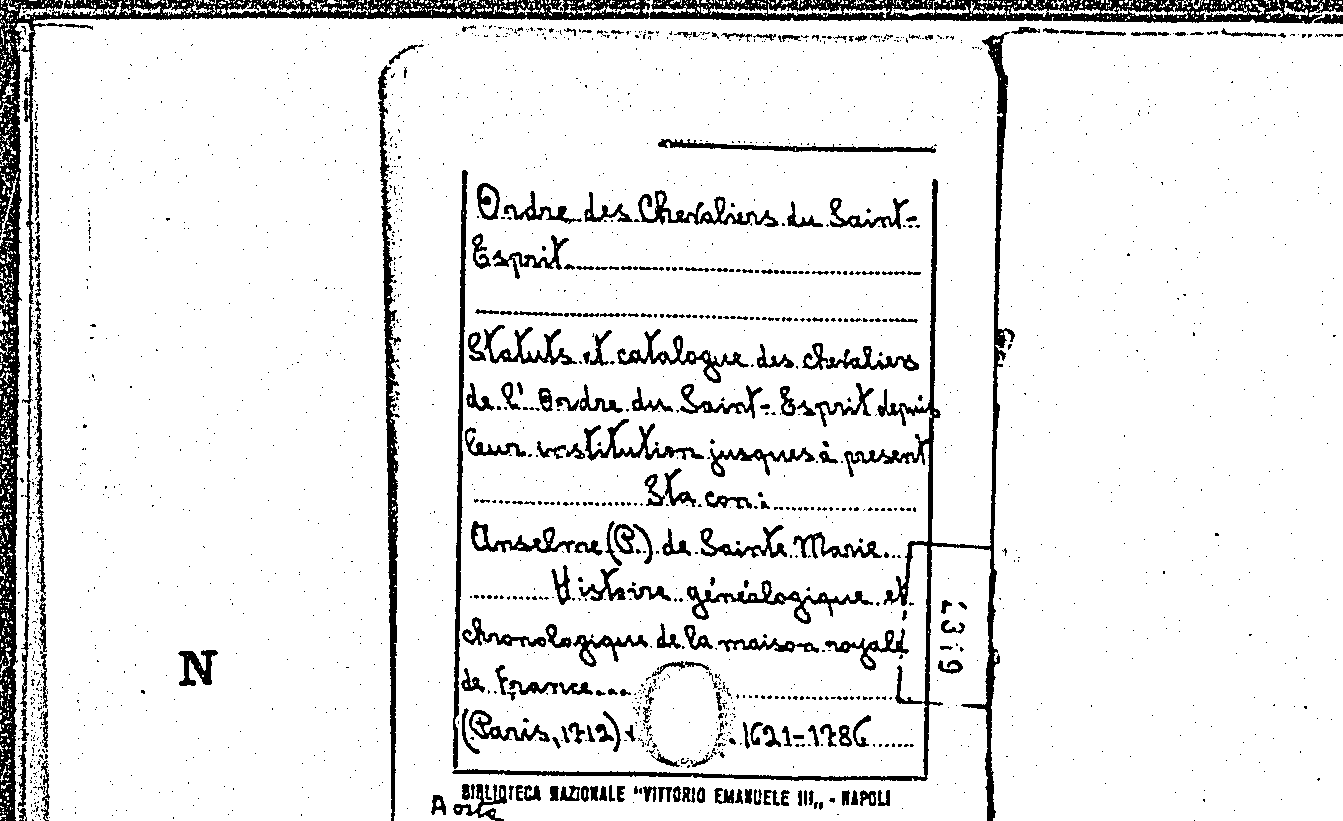 Ordre des Chevaliers du Saint-
Esprit
Statuts et catalogue des chevaliers
de l'Ordre du Saint-Esprit depuis
leur institution jusques à present
Sta con:
Anselme (P.) de Sainte Marie
Histoire généalogique et
chronologique de la maison royale
de France...
(Paris, 1712)
1621-1786
BIBLIOTECA NAZIONALE "VITTORIO EMANUELE III„ - NAPOLI
Aosta
N